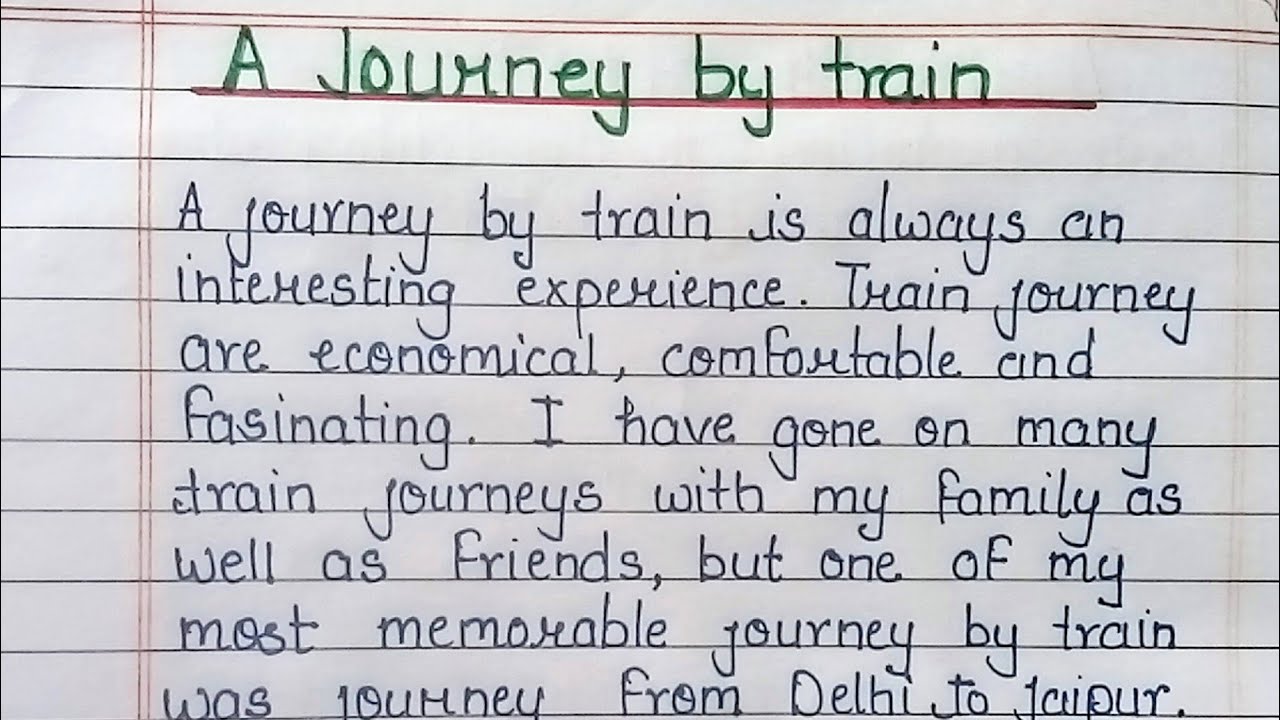 A Journey by train
A journey by train is always an
interesting experience. Train journey
are economical, comfortable and
fasinating. I have gone on many
train journeys with my family as
well as friends, but one of my
most memorable journey by train
was journey from Delhi to jaipur.